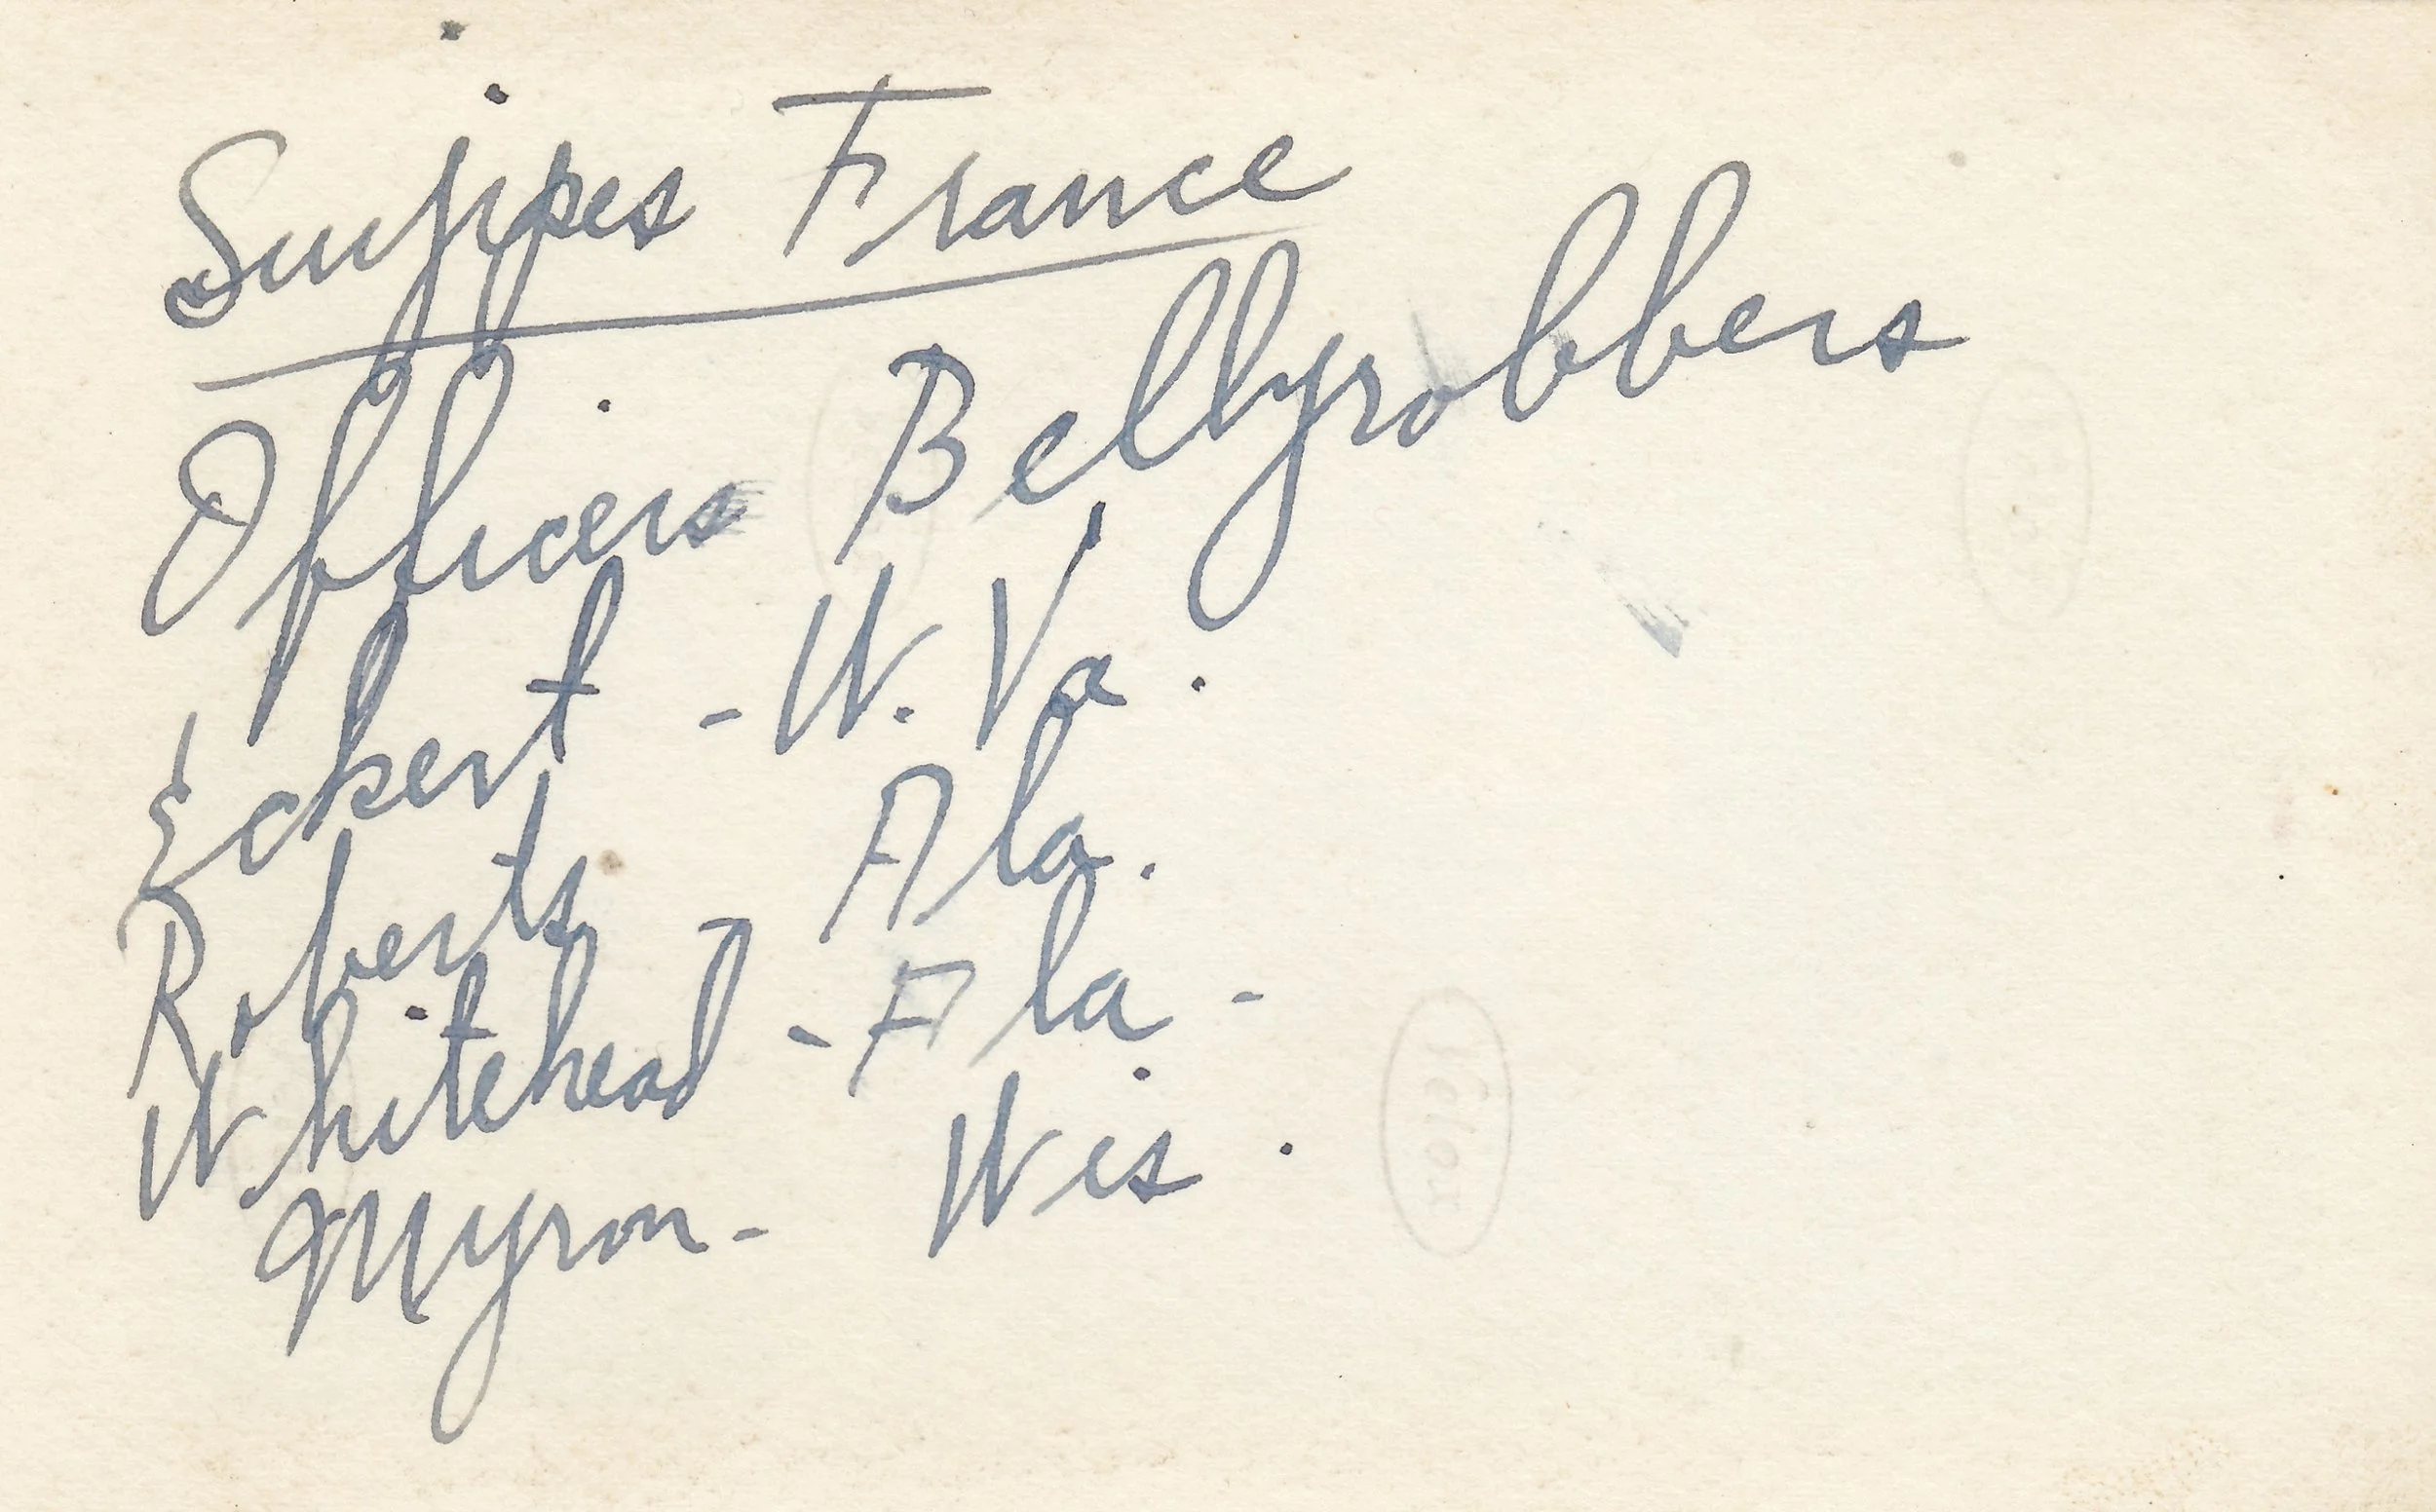 Suippes France
Officers Bellyrobbers
Eckert - W. Va.
Roberts Ala.
Whitehead - Ala -
Myron - Wis.
Velox